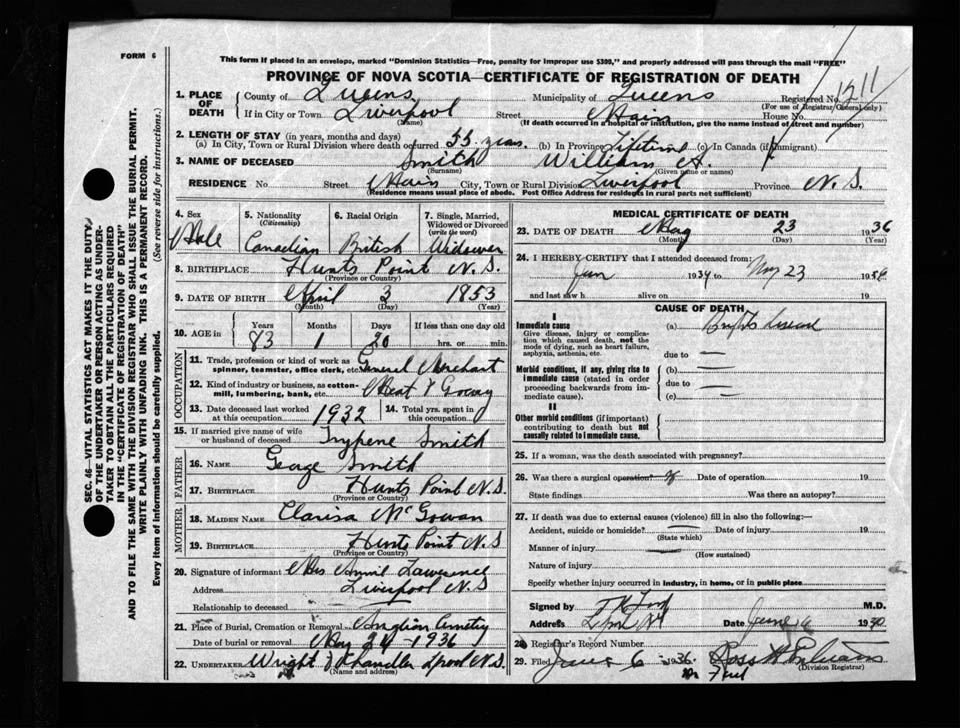 FORM 6
This form if placed in an envelope, marked "Dominion Statistics—Free, penalty for improper use $300," and properly addressed will pass through the mail "FREE"
PROVINCE OF NOVA SCOTIA—CERTIFICATE OF REGISTRATION OF DEATH
SEC. 46—VITAL STATISTICS ACT MAKES IT THE DUTY OF THE UNDERTAKER OR PERSON ACTING AS UNDERTAKER TO OBTAIN ALL THE PARTICULARS REQUIRED IN THE "CERTIFICATE OF REGISTRATION OF DEATH" AND TO FILE THE SAME WITH THE DIVISION REGISTRAR WHO SHALL ISSUE THE BURIAL PERMIT.
WRITE PLAINLY WITH UNFADING INK. THIS IS A PERMANENT RECORD.
Every item of information should be carefully supplied. (See reverse side for instructions.)
1. PLACE OF DEATH County of Queens Municipality of Queens Registered No. 1311
(For use of Registrar General only)
If in City or Town Liverpool Street Main House No.
(Name) (If death occurred in a hospital or institution, give the name instead of street and number)
2. LENGTH OF STAY (in years, months and days)
(a) In City, Town or Rural Division where death occurred 55 years. (b) In Province Lifetime (c) In Canada (if immigrant)
3. NAME OF DECEASED Smith William A.
(Surname) (Given name or names)
RESIDENCE No Street Main City, Town or Rural Division Liverpool Province N.S.
(Residence means usual place of abode. Post Office Address for residents in rural parts not sufficient)
4. Sex Male
5. Nationality (Citizenship) Canadian
6. Racial Origin British
7. Single, Married, Widowed or Divorced (write the word) Widower
8. BIRTHPLACE Hunts Point N.S.
(Province or Country)
9. DATE OF BIRTH April 3 1853
(Month) (Day) (Year)
10. AGE in Years Months Days If less than one day old
83 1 20 hrs. or min.
OCCUPATION
11. Trade, profession or kind of work as spinner, teamster, office clerk, etc. General Merchant
12. Kind of industry or business, as cotton-mill, lumbering, bank, etc. Meat & Grocery
13. Date deceased last worked at this occupation 1932 14. Total yrs. spent in this occupation.
15. If married give name of wife or husband of deceased Tryphene Smith
FATHER
16. NAME George Smith
17. BIRTHPLACE Hunts Point N.S.
(Province or Country)
MOTHER
18. MAIDEN NAME Clarisa McGowan
19. BIRTHPLACE Hunts Point N.S
(Province or Country)
20. Signature of informant Mrs Lawrence
Address Liverpool N.S
Relationship to deceased
21. Place of Burial, Cremation or Removal Anglican Cemetery
Date of burial or removal May 24 - 1936
22. UNDERTAKER Wright & Chandler Lpool N.S.
(Name and address)
MEDICAL CERTIFICATE OF DEATH
23. DATE OF DEATH May 23 1936
(Month) (Day) (Year)
24. I HEREBY CERTIFY that I attended deceased from:
Jan 1934 to May 23 1936
and last saw h alive on 19
CAUSE OF DEATH
I
Immediate cause (a) Brights disease
Give disease, injury or complication which caused death, not the mode of dying, such as heart failure, asphyxia, asthenia, etc.
due to —
Morbid conditions, if any, giving rise to immediate cause (stated in order proceeding backwards from immediate cause). (b) —
due to —
(c)
II
Other morbid conditions (if important) contributing to death but not causally related to immediate cause.
25. If a woman, was the death associated with pregnancy?
26. Was there a surgical operation? Date of operation 19
State findings Was there an autopsy?
27. If death was due to external causes (violence) fill in also the following:—
Accident, suicide or homicide? — Date of injury 19
(State which)
Manner of injury —
(How sustained)
Nature of injury
Specify whether injury occurred in industry, in home, or in public place
Signed by M.D.
Address Date June 6 19
28. Registrar's Record Number
29. Filed June 6 1936
(Division Registrar)